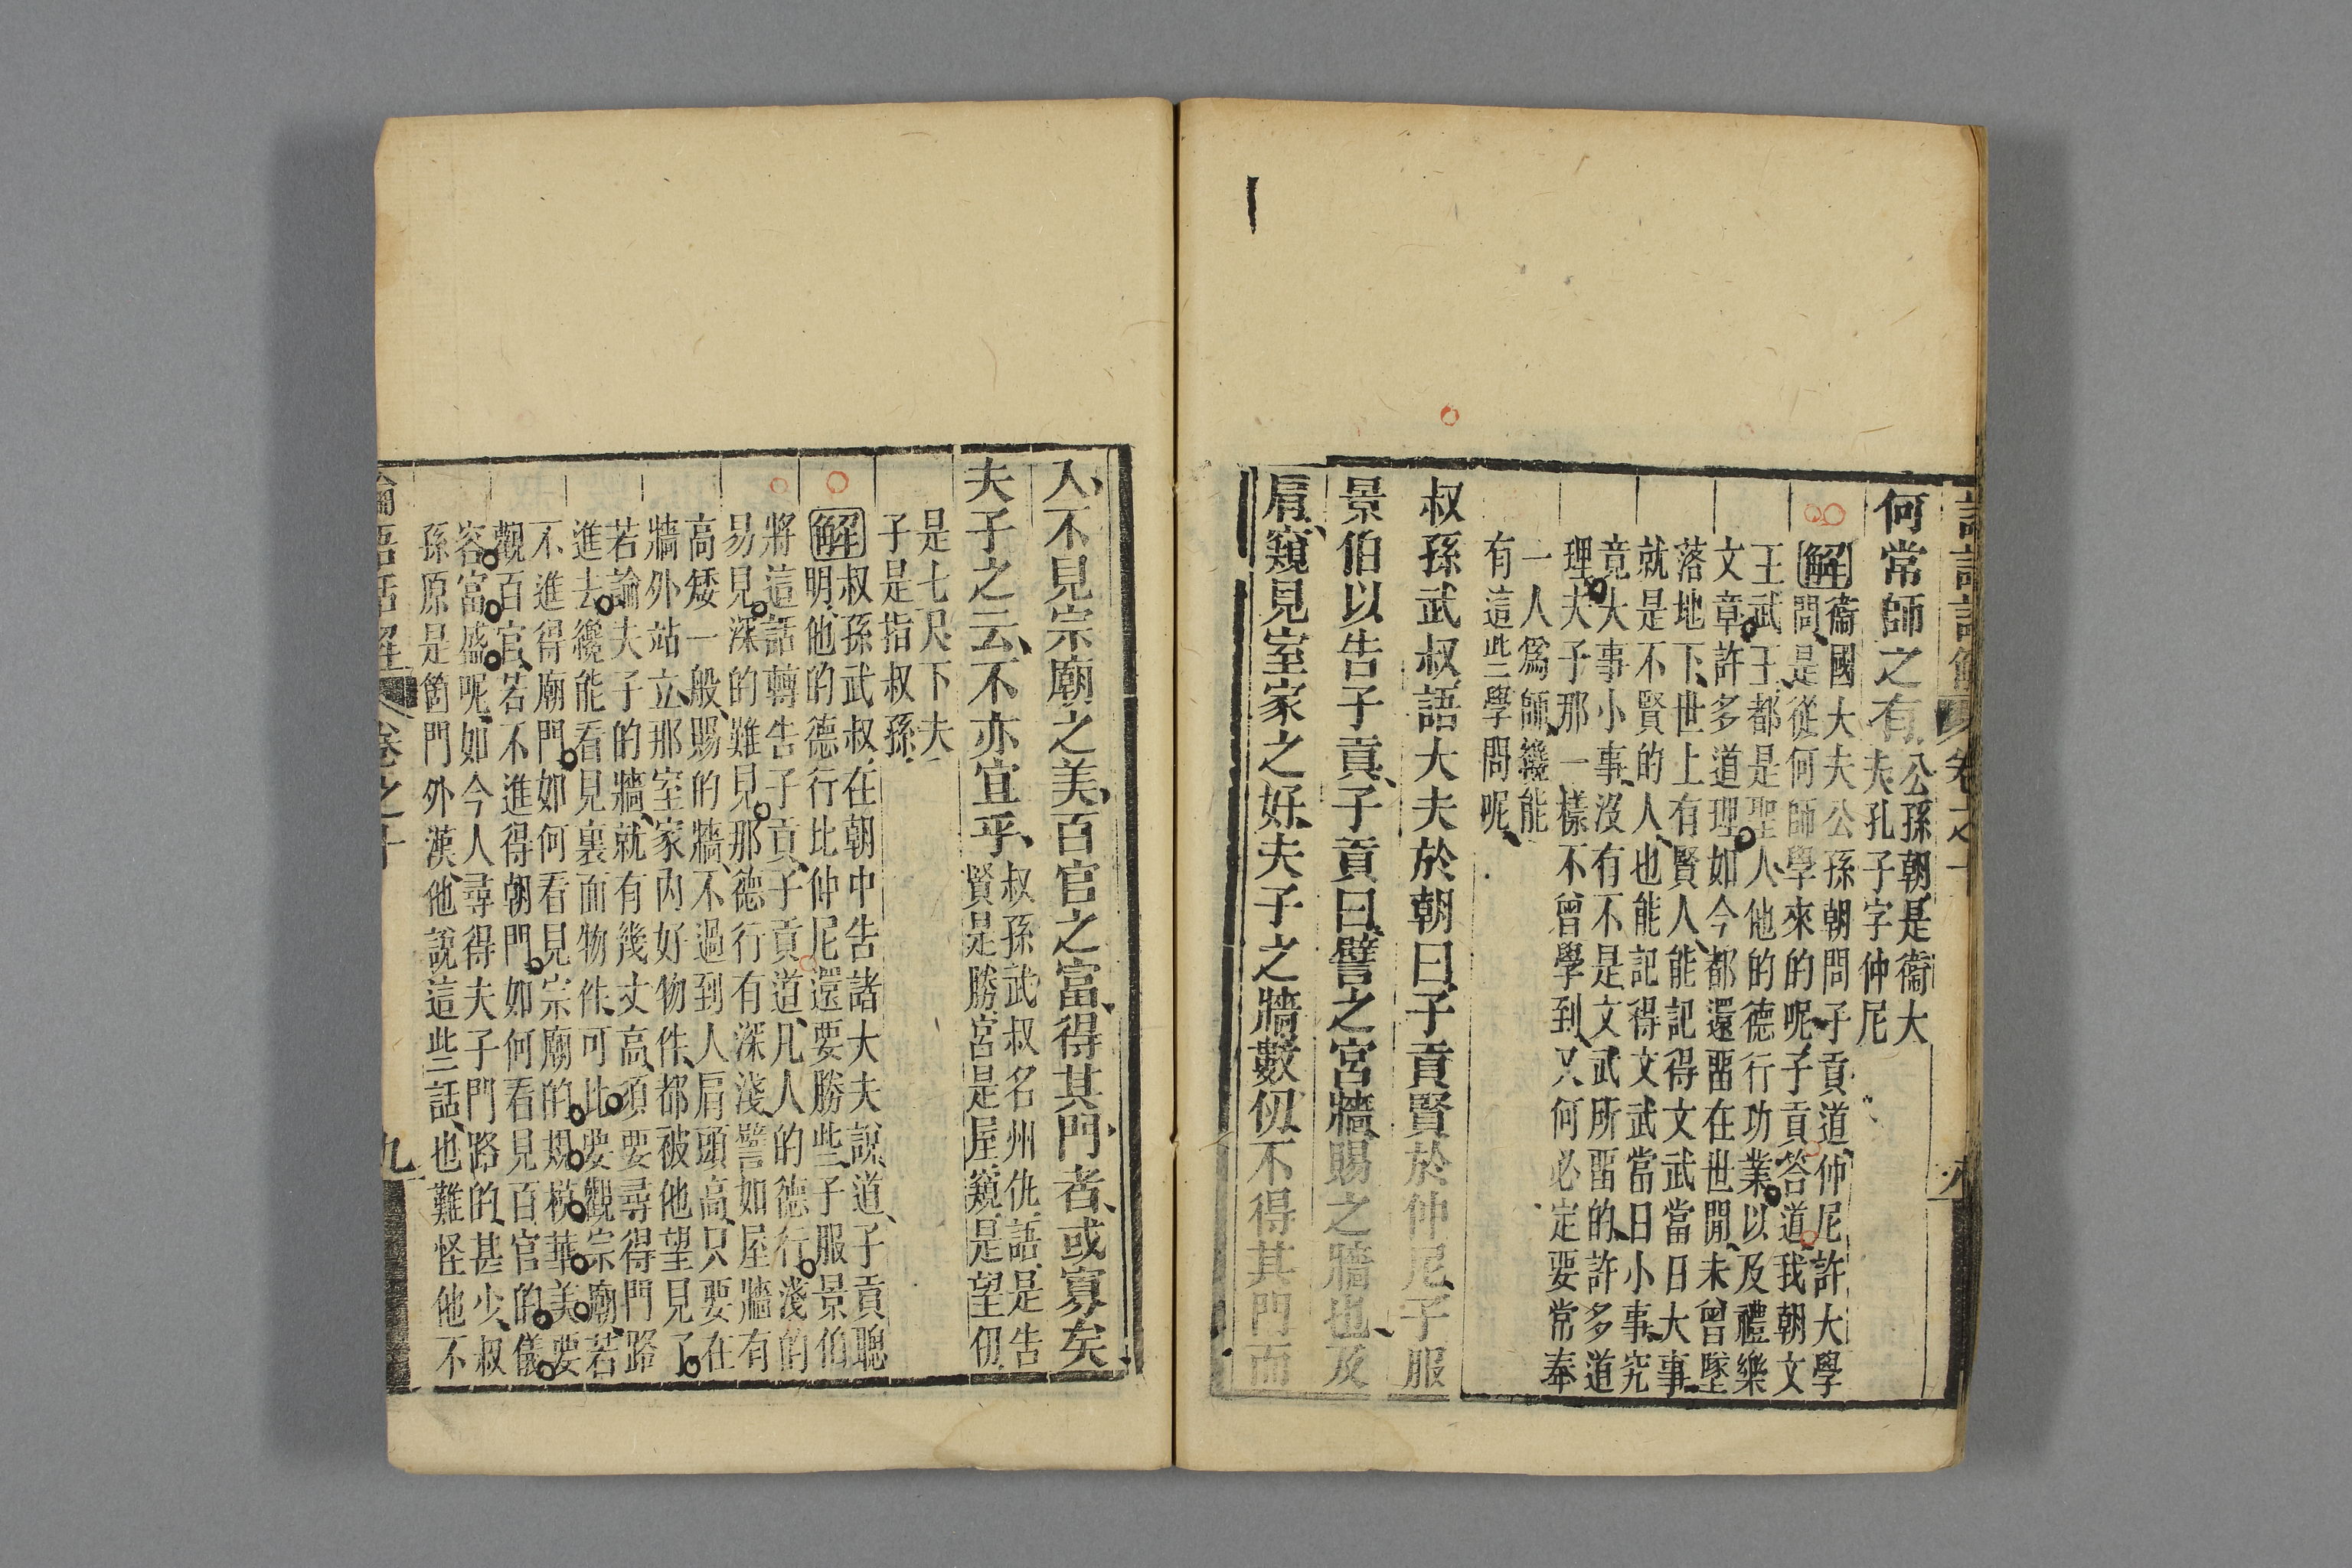 何常師之有
公孫朝是衞大
夫孔子字仲尼
解
衞國大夫公孫朝問子貢道仲尼許大學
問是從何師學來的呢子貢答道我朝文
王武王都是聖人他的德行功業以及禮樂
文章許多道理如今都還畱在世間未曾墜
落地下世上有賢人能記得文武當日大事
就是不賢的人也能記得文武當日小事究
竟大事小事没有不是文武所畱的許多道
理夫子那一樣不曾學到又何必定要常奉
一人爲師纔能
有這些學問呢
叔孫武叔語大夫於朝曰子貢賢於仲尼子服
景伯以告子貢子貢曰譬之宮牆賜之牆也及
肩窺見室家之好夫子之牆數仞不得其門而
入不見宗廟之美百官之富得其門者或寡矣
夫子之云不亦宜乎
叔孫武叔名州仇語是告
賢是勝宮是屋窺是望仞
是七尺下夫
子是指叔孫
解
叔孫武叔在朝中告諸大夫說道子貢聰
明他的德行比仲尼還要勝些子服景伯
將這話轉告子貢子貢道凡人的德行淺的
易見深的難見那德行有深淺譬如屋牆有
高矮一般賜的牆不過到人肩頭高只要在
牆外站立那室家內好物件都被他望見了
若論夫子的牆就有幾丈高須要尋得門路
進去纔能看見裏面物件可比要觀宗廟若
不進得廟門如何看見宗廟的規模華美要
觀百官若不進得朝門如何看見百官的儀
容富盛呢如今人尋得夫子門路的甚少叔
孫原是箇門外漢他說這些話也難怪他不
論語話解
卷之十
九